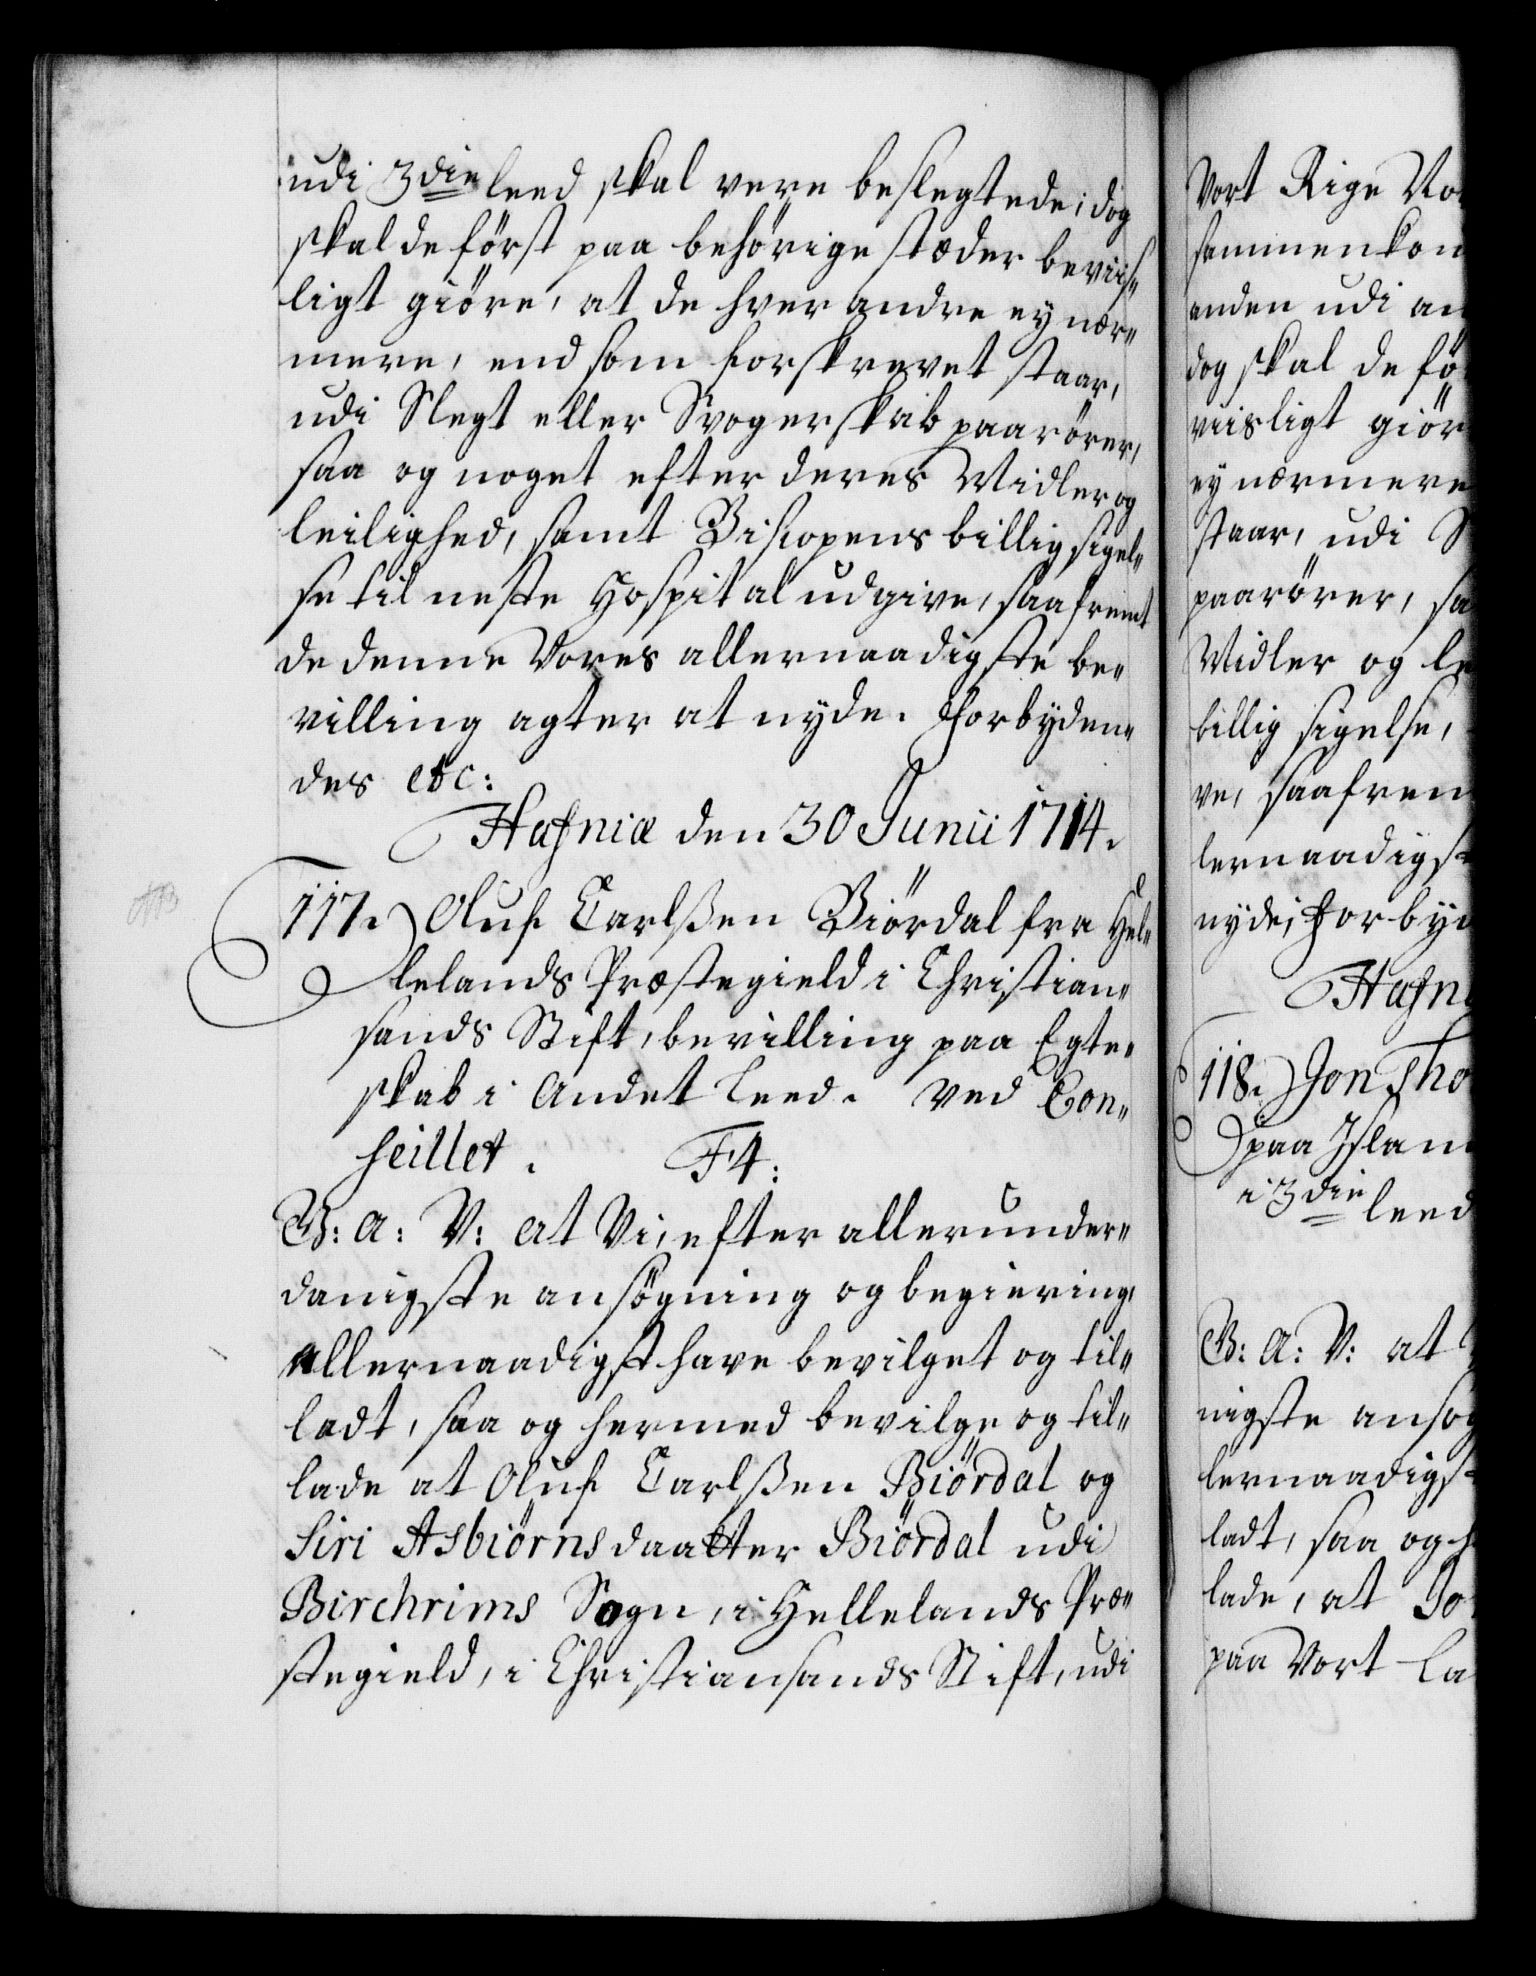 udi 3die leed skal vere beslegtede; dog
skal de först paa behörige stæder beviis„
ligt giöre, at de hver andre ey nær„
mere, end som forskrevet staar,
udi Slegt eller Svogerskab paarörer,
saa og noget efter deres Midler og
leilighed, samt Biscopens billig sigel„
se til neste Hospital udgive, saafremt
de denne Vores allernaadigste be„
villing agter at nyde. Forbyden„
des etc:
Hafniæ den 30 Junii 1714.
117. Oluf Carlßen Biördal fra Hel„
lelands Præstegield i Christian„
sands Stift, bevilling paa Egte„
skab i Andet Leed. Ved Con„
seillet. F4:
G: A: V: at Vi, efter allerunder„
danigste ansögning og begiering,
allernaadigst have bevilget og til„
ladt, saa og hermed bevilge og til„
lade at Oluf Carlßen Biördal og
Siri Asbiörnsdaatter Biördal udi
Birchrims Sogn, i Hellelands Præ„
stegield, i Christiansands Stift, udi
Vort Rige No
sammenkom
anden udi an
dog skal de fö
viisligt giör
ey nærmere
staar, udi S
paarörer, sa
Midler og le
billig sigelse,
ve, saafrem
lernaadigst
nyde; Forbyd
Hafni
118. Jon Tho
paa Islan
i 3die leed
G: A: V: at
nigste ansög
lernaadigst
ladt, saa og h
lade, at Jo
paa Vort La